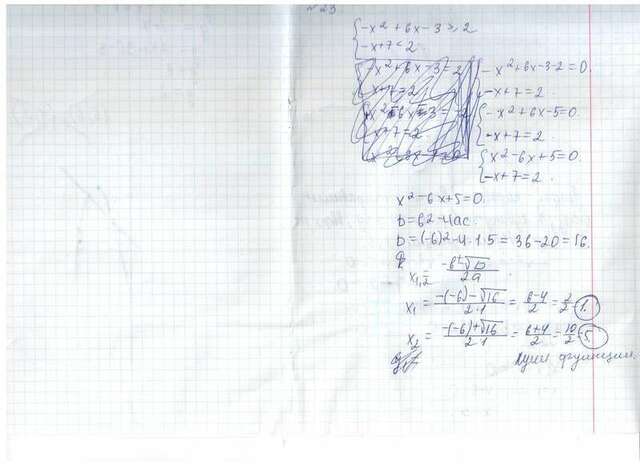 №23
{-x² + 6x - 3 ≥ 2
-x + 7 < 2
{-x² + 6x - 3 - 2 = 0.
-x + 7 = 2
{-x² + 6x - 5 = 0.
-x + 7 = 2.
{x² - 6x + 5 = 0.
-x + 7 = 2.
x² - 6x + 5 = 0.
D = b² - 4ac
D = (-6)² - 4·1·5 = 36 - 20 = 16.
x₁,₂ = -b±√D / 2a
x₁ = -(-6)-√16 / 2·1 = 6-4 / 2 = 2/2 = 1.
x₂ = -(-6)+√16 / 2·1 = 6+4 / 2 = 10/2 = 5.
нули функции.